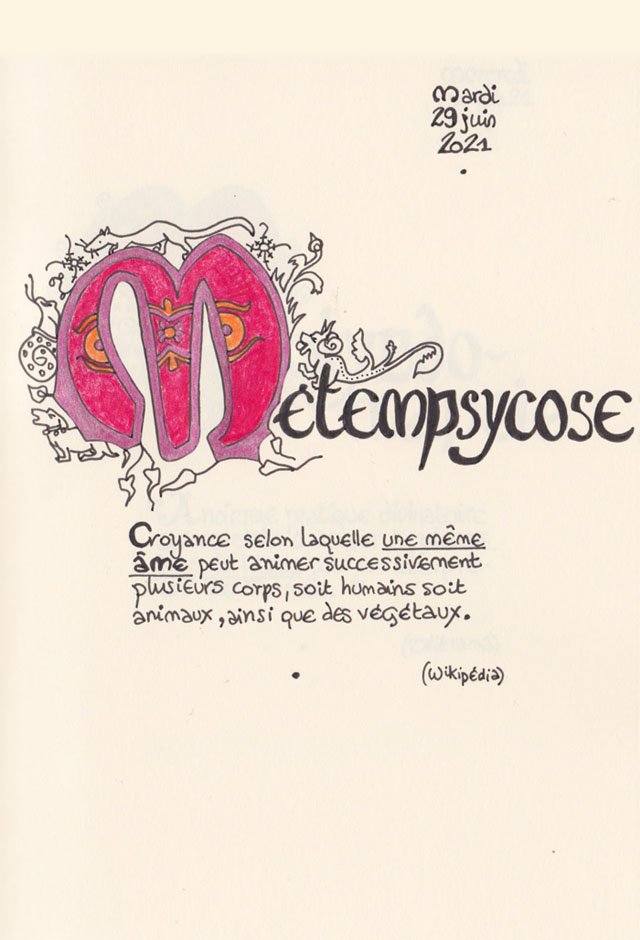 Mardi
29 juin
2021
Métempsycose
Croyance selon laquelle une même
âme peut animer successivement
plusieurs corps, soit humains soit
animaux, ainsi que des végétaux.
(Wikipédia)